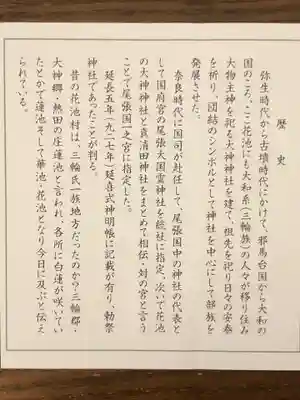 歴史
弥生時代から古墳時代にかけて、邪馬台国から大和の
国のころ、ここ花池にも大和系（三輪族）の人々が移り住み
大物主神を祀る大神神社を建て、祖先を祀り日々の安泰
を祈り、団結のシンボルとして神社を中心にして部族を
発展させた。
奈良時代に国司が赴任して、尾張国中の神社の代表と
して国府宮の尾張大国霊神社を総社に指定、次いで花池
の大神神社と真清田神社をまとめて相伝・対の宮と言う
ことで尾張国一之宮に指定した。
延長五年（九二七年）延喜式神明帳に記載が有り、勅祭
神社であったことが判る。
昔の花池村は、三輪氏族地方だったのか？三輪郡・
大神郷・熱田の庄蓮池と言われ、各所に白蓮が咲いてい
たとかで蓮池そして華池・花池となり今日に及ぶと伝え
られている。